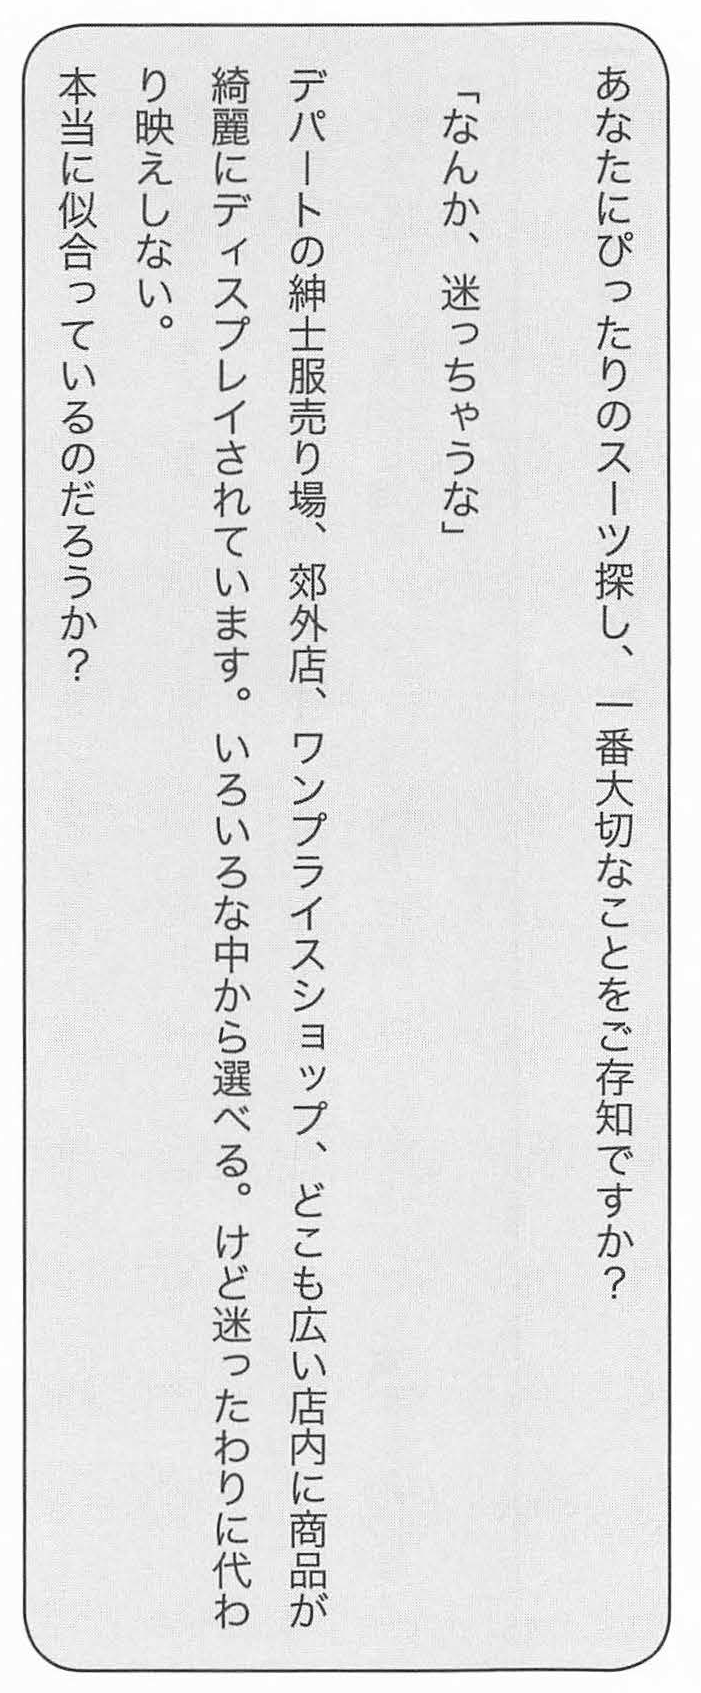 あなたにぴったりのスーツ探し、一番大切なことをご存知ですか?
「なんか、迷っちゃうな」
デパートの紳士服売り場、郊外店、ワンプライスショップ、どこも広い店内に商品が
綺麗にディスプレイされています。いろいろな中から選べる。けど迷ったわりに代わ
り映えしない。
本当に似合っているのだろうか?